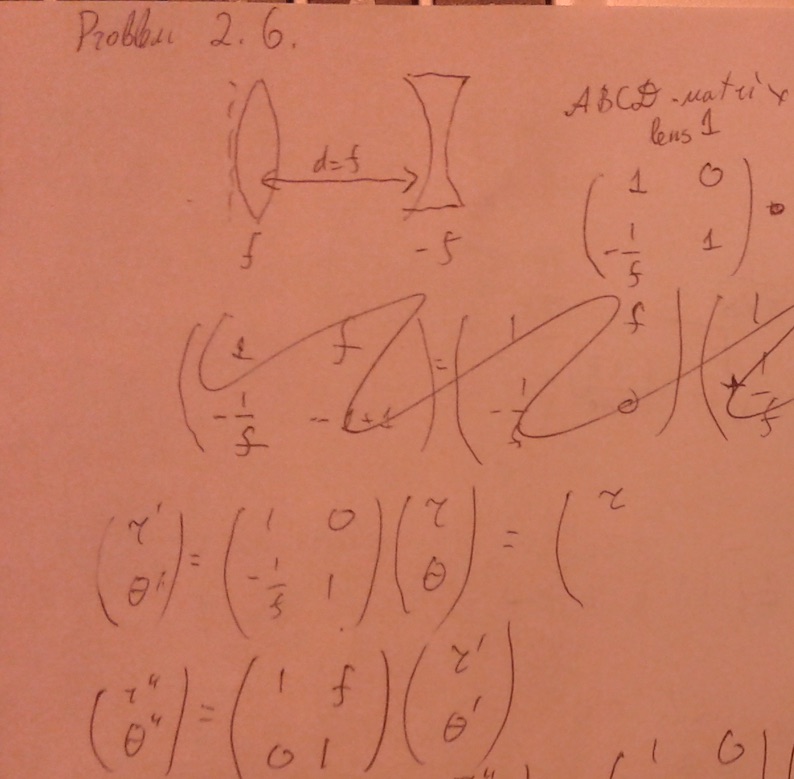 Problem 2.6.
ABCD-matrix
lens 1
d=f
f
-f
( 1 0
-1/f 1 ) •
( 1 f
-1/f -1+1 ) = ( 1 f
-1/f 0 ) ( 1
-1/f
( r'
θ' ) = ( 1 0
-1/f 1 ) ( r
θ ) = ( r
( r"
θ" ) = ( 1 f
0 1 ) ( r'
θ' )
( 1 0